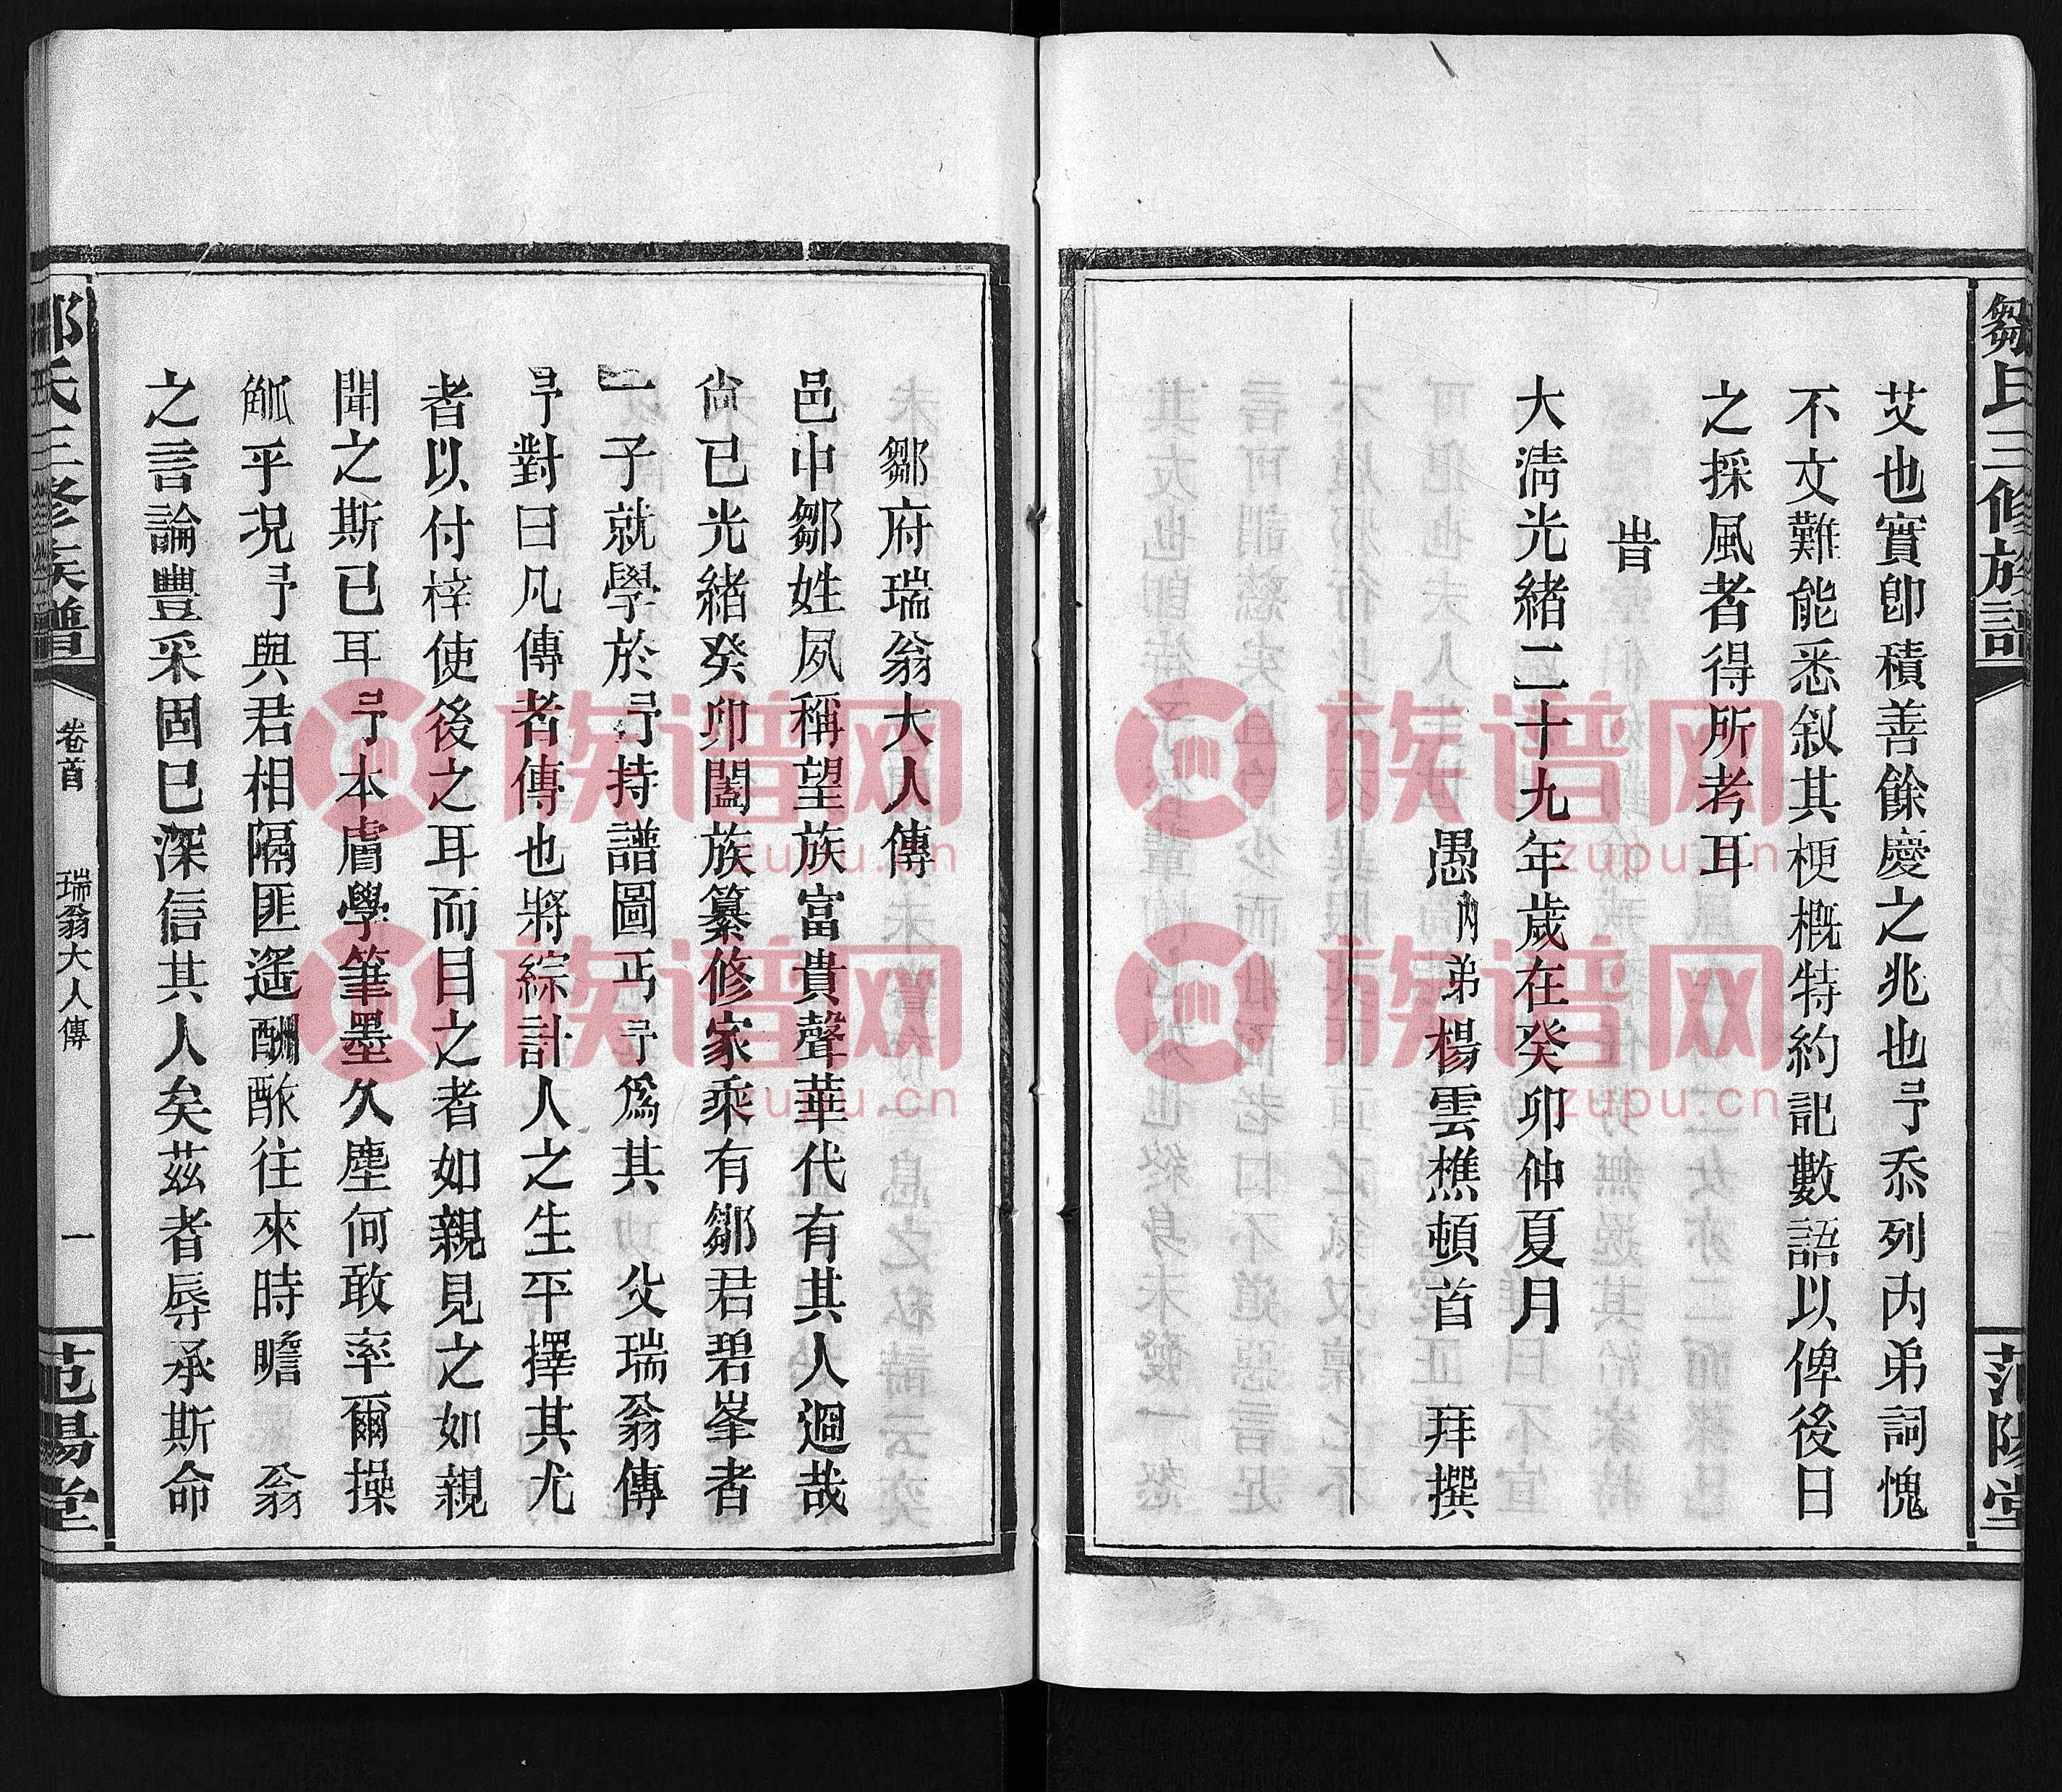 鄒氏三修族譜
范陽堂
艾也實卽積善餘慶之兆也予忝列內弟詞愧
不文難能悉叙其梗概特約記數語以俾後日
之採風者得所考耳
旹
大淸光緒二十九年歲在癸卯仲夏月
愚內弟楊雲樵頓首 拜撰
鄒府瑞翁大人傳
邑中鄒姓夙稱望族富貴聲華代有其人迴哉
尙已光緒癸卯闔族纂修家乘有鄒君碧峯者
子就學於予持譜圖丏予爲其 父瑞翁傳
予對曰凡傳者傳也將綜計人之生平擇其尤
者以付梓使後之耳而目之者如親見之如親
聞之斯已耳予本膚學筆墨久塵何敢率爾操
觚乎况予與君相隔匪遙酬酢往來時瞻 翁
之言論豐采固已深信其人矣茲者辱承斯命
鄒氏三修族譜
卷首
瑞翁大人傳
一
范陽堂
族谱网
zupu.cn
族谱网
zupu.cn
族谱网
zupu.cn
族谱网
zupu.cn